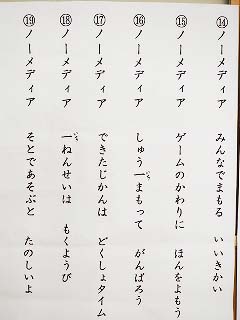 ⑭ノーメディア　みんなでまもる　いいきかい
⑮ノーメディア　ゲームのかわりに　ほんをよもう
⑯ノーメディア　しゅう一まもって　がんばろう
⑰ノーメディア　できたじかんは　どくしょタイム
⑱ノーメディア　一ねんせいは　もくようび
⑲ノーメディア　そとであそぶと　たのしいよ